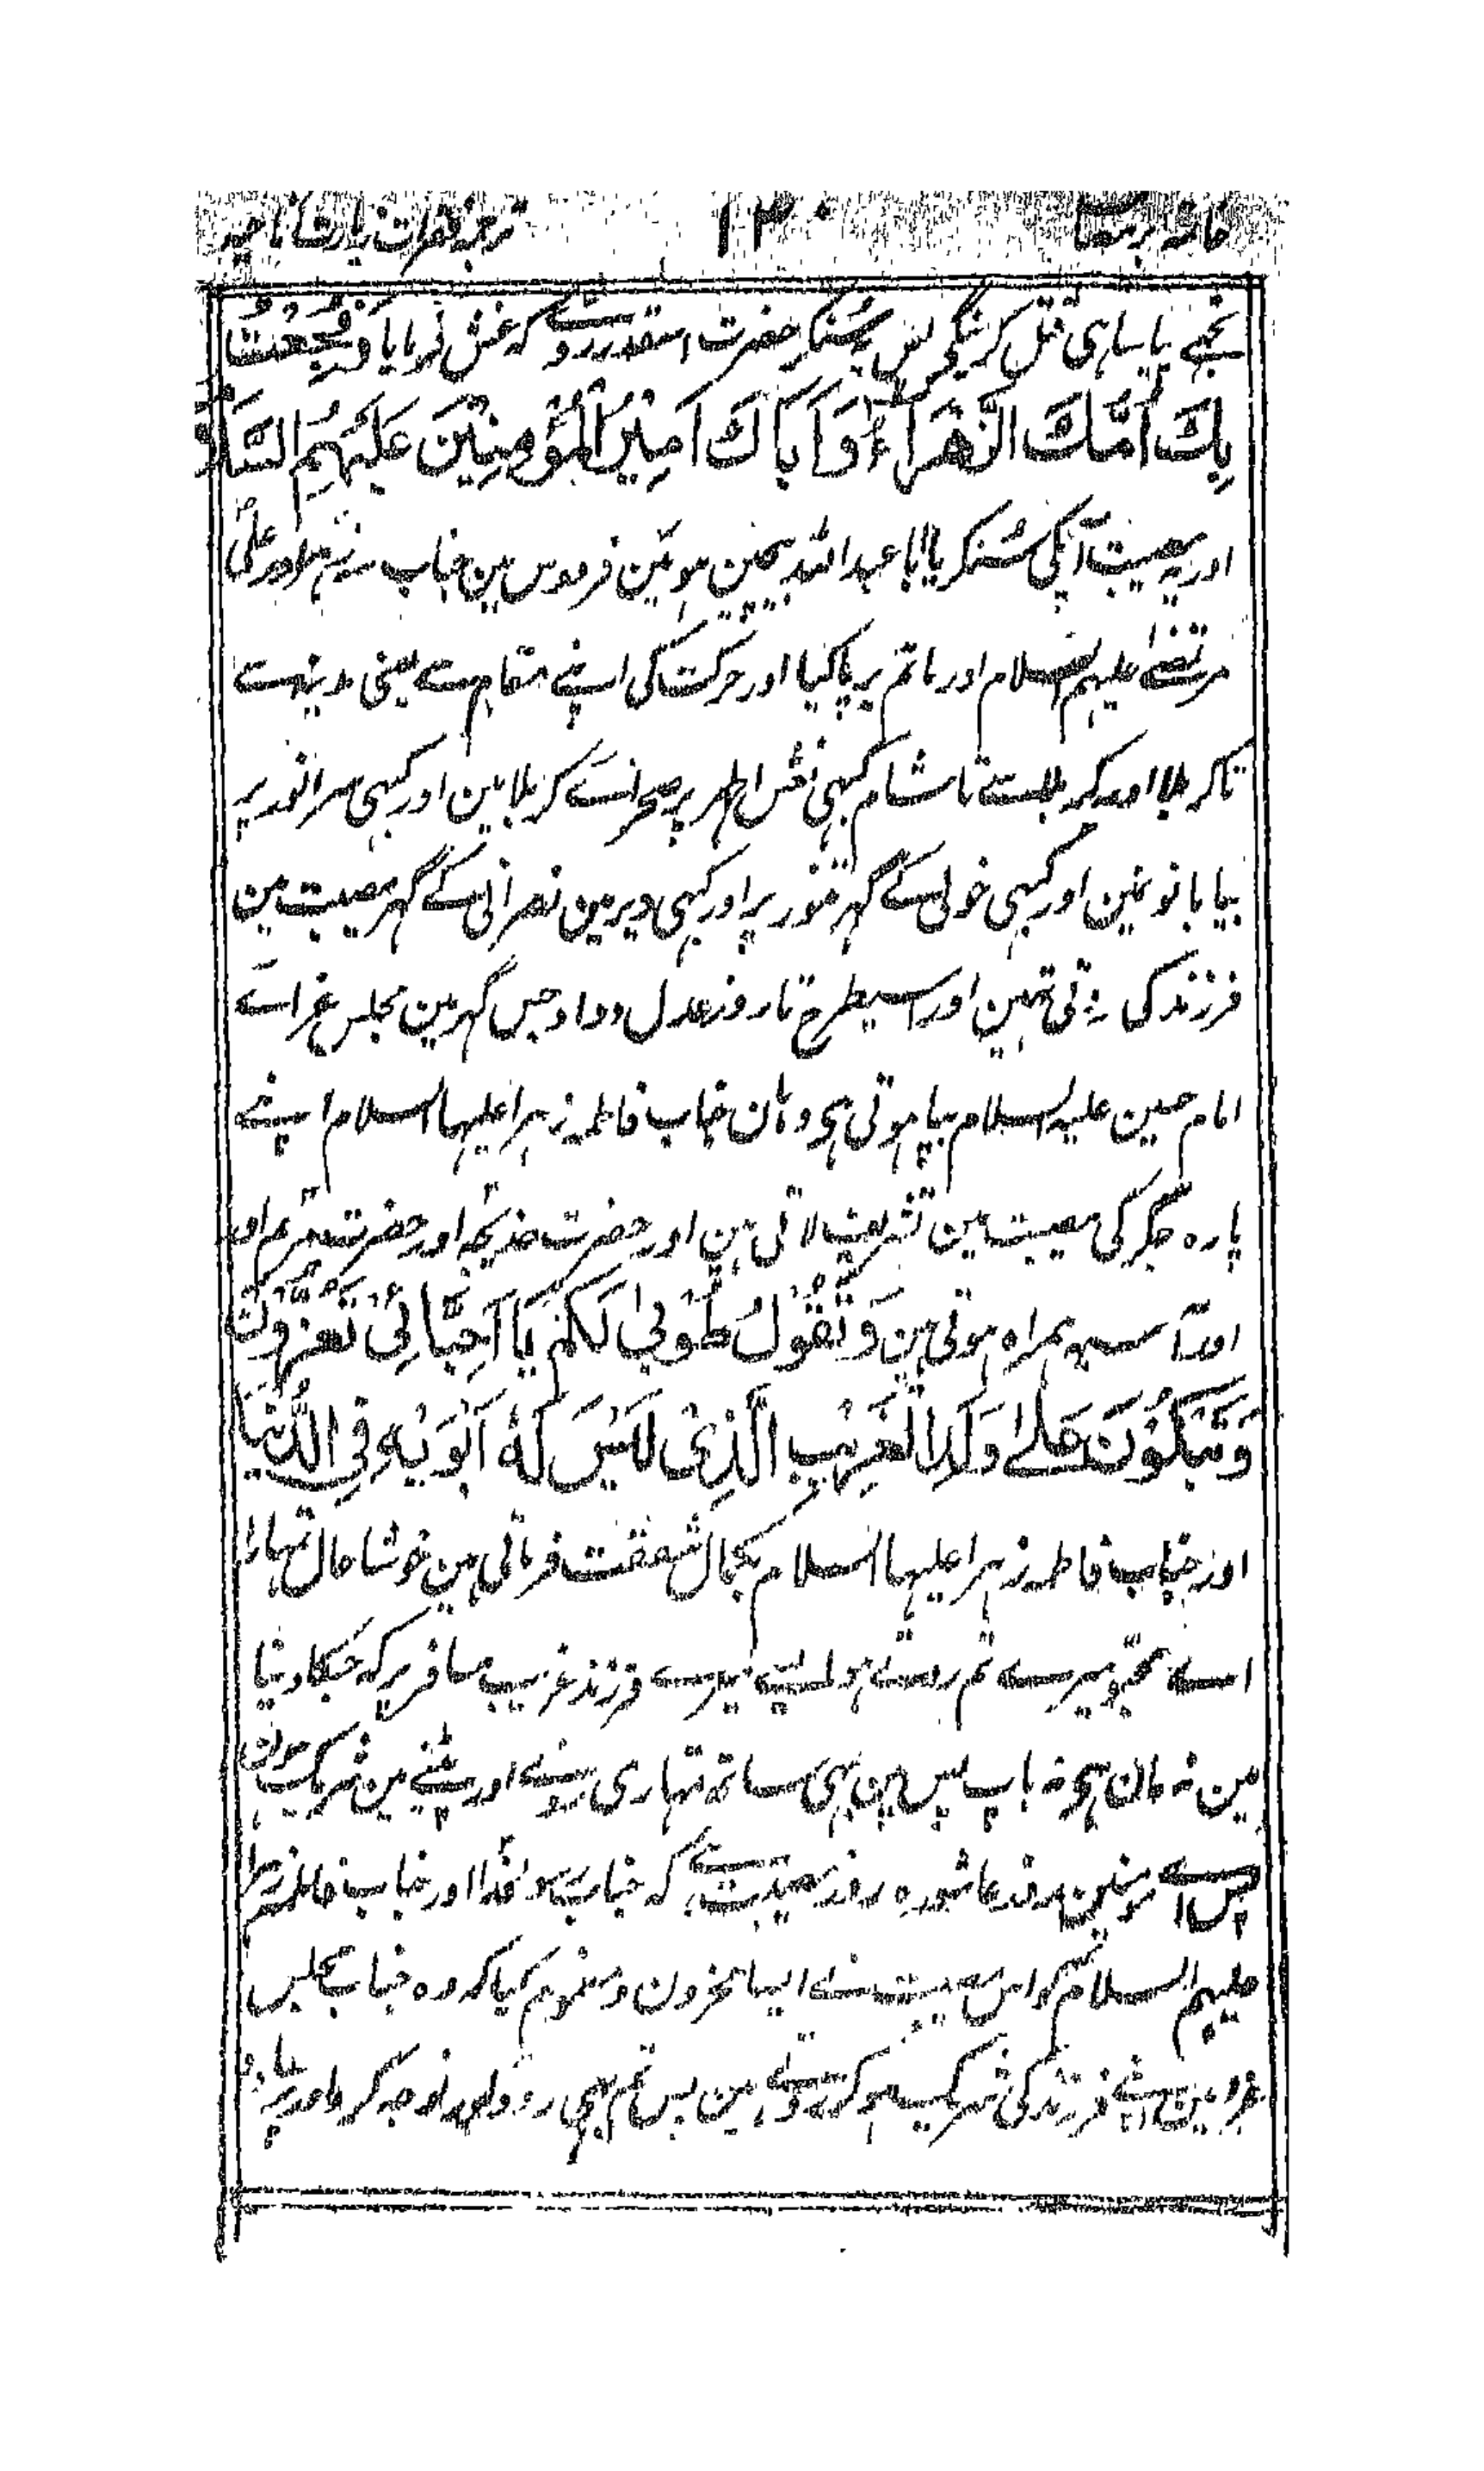 ترجمہ فقرات زیارت ناحیہ ۱۳۰
تجھے پیاسا ہی قتل کرینگی پس یہ سُنکر حضرت اسقدر روئے کہ غش فرمایا وَفُجِعَتْ
بِكَ اُمُّكَ الزَّهْرَاءُ وَاَبَاكَ اَمِيْرُ الْمُؤْمِنِيْنَ عَلَيْهِمُ السَّلَامُ
اور مصیبت آپکی سُنکر یا ابا عبداللہ بیچین ہوئین فردوس مین جناب زہرا اور علی
مرتضٰے علیہم السلام اور ماتم برپا کیا اور حرکت کی اپنے مقام سے یعنی مدینہ سے
تا کربلا اور کربلا سے تا شام کبہی نعش اطہر پر صحرائے کربلا مین اور کبہی سر انور پر
بیابانونمین اور کبہی خولی کے گہر تنور پر اور کبہی دیر مین نصرانی کے گہر مصیبت مین
فرزند کی روتی تہین اور اسیطرح تا روز عدل و داد جس گہر مین مجلس عزائے
امام حسین علیہ السلام بپا ہوتی ہی وہان جناب فاطمہ زہرا علیہا السلام اپنے
پارہ جگر کی مصیبت مین تشریف لاتی ہین اور حضرت خدیجہ اور حضرت مریم اور
اور آسیہ ہمراہ ہوتی ہین وَتَقُوْلُ طُوْبٰی لَكُمْ يَا اَحِبَّائِیْ تَعْزُوْنَ
وَتَبْكُوْنَ عَلٰے وَلَدِ الْغَرِيْبِ الَّذِیْ لَيْسَ لَهٗ اَبَوَيْهِ فِی الدُّنْيَا
اور جناب فاطمہ زہرا علیہا السلام بکمال شفقت فرماتی ہین خوشا حال تمہارا
اے محبو میرے تم روتے ہو میرے فرزند غریب مسافر پر کہ جسکا دنیا
مین نہ مان ہی نہ باپ پس مین بہی ساتھ تمہاری رونے اور پٹنے مین شریک ہون
پس اے مومنین روز عاشورہ روز مصیبت ہے کہ جناب رسولخدا اور جناب فاطمہ زہرا
علیہم السلام کو اس مصیبت نے ایسا محزون و مغموم کیا کہ وہ جناب مجلس
عزا مین اپنے فرزند کی شریک ہو کر روتے ہین پس تم بہی روؤ اور نوحہ کرو اور